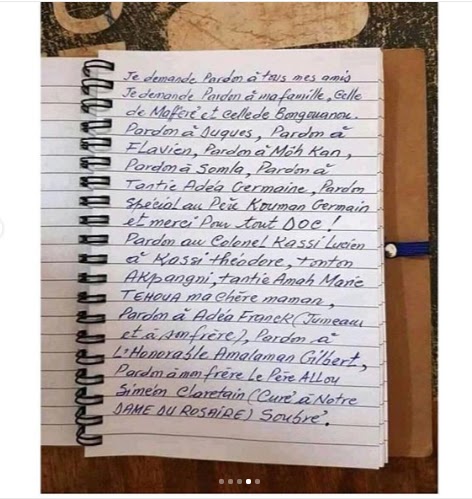 Je demande Pardon à tous mes amis
Je demande Pardon à ma famille, celle
de Mafféré et celle de Bongouanou.
Pardon à Dugues, Pardon à
FLavien, Pardon à Môh Kan,
Pardon à Somla, Pardon à
Tantie Adéa Germaine, Pardon
Spécial au Père Kouman Germain
et merci Pour tout DOC !
Pardon au Colonel Kassi Lucien
à Kassi théodore, tonton
AKpangni, tantie Amah Marie
TEHOUA ma chère maman,
Pardon à Adéa Franck (Jumeau
et à son frère), Pardon à
L'Honorable Amalaman Gilbert,
Pardon à mon frère Le Père ALLou
Siméon Claretain (Curé à Notre
DAME DU ROSAIRE) Soubré.